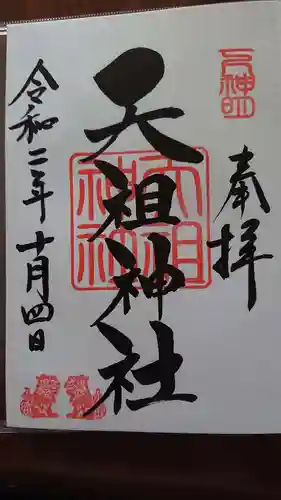 元神明
奉拝
天祖神社
天祖神社
令和二年十月四日